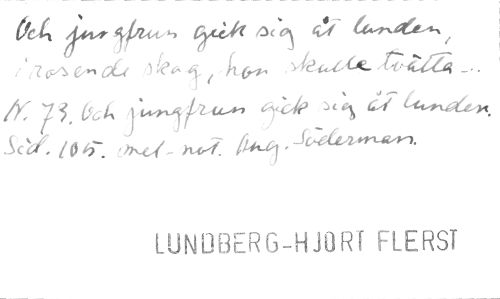 Och jungfrun gick sig åt lunden,
i rosende skog, hon skulle tvätta...
N. 73. Och jungfrun gick sig åt lunden.
Sid. 105. mel-not. Aug. Söderman.
LUNDBERG-HJORT FLERST